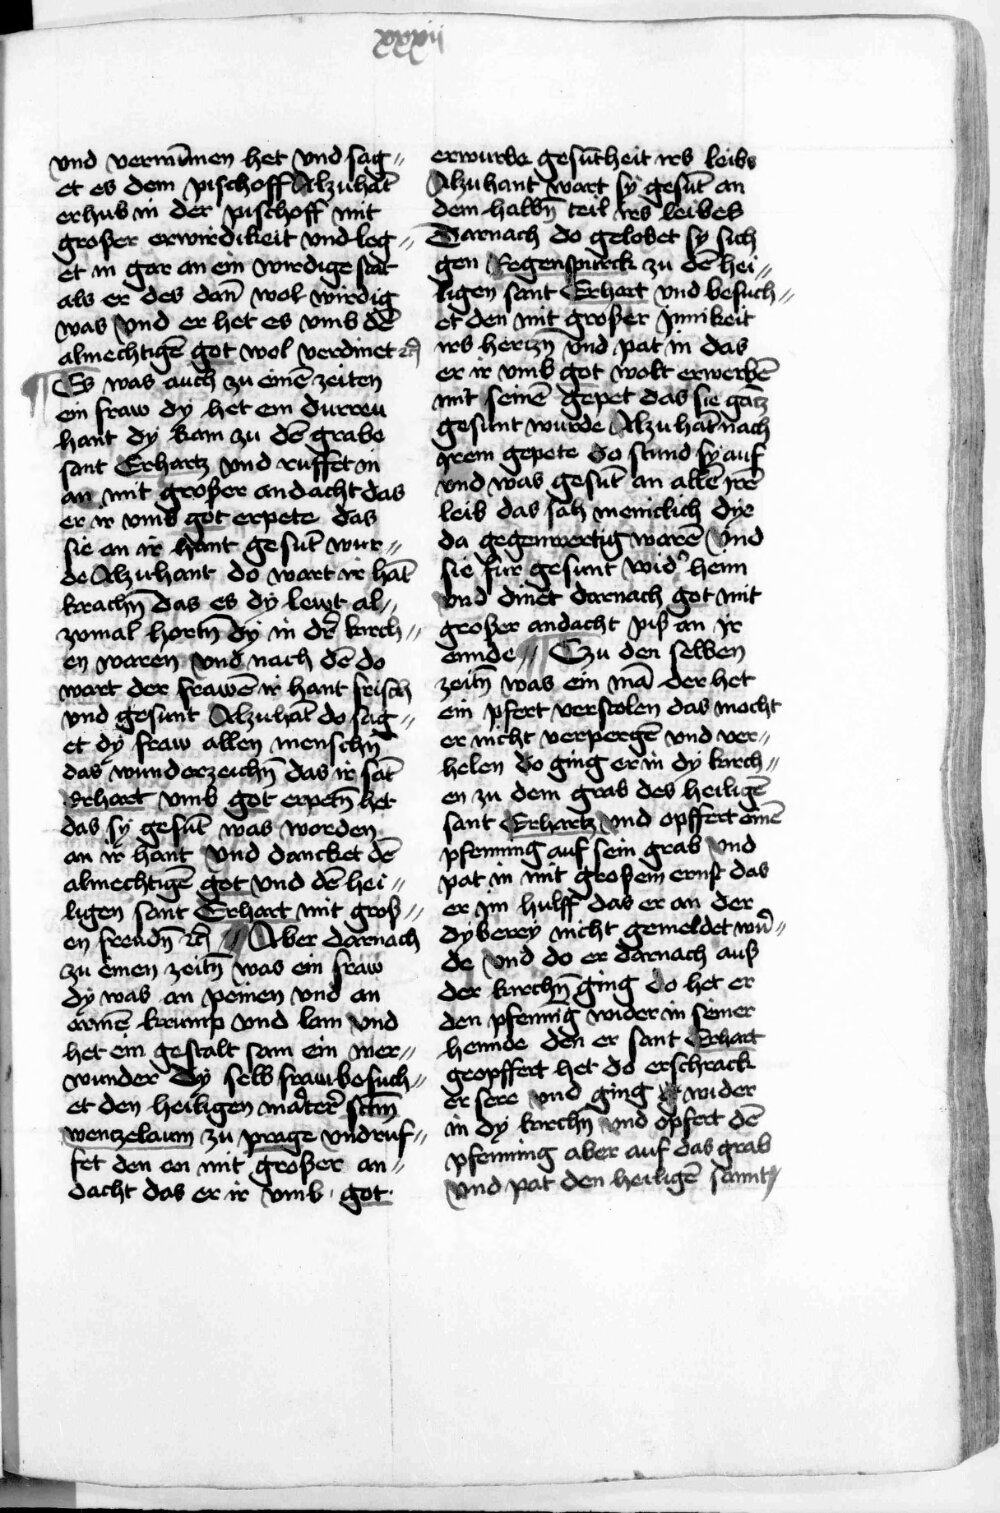 xxxvii
vnd vernūmen het vnd sag〃
et es dem pischoff Alzuhāt
erhub in der pischoff mit
großer erwirdikeit vnd leg〃
et in gar an ein wirdige stat
als er des dañ wol wirdig
was vnd er het es vmb dē
almechtigē got wol verdinet ⁊c̄
¶ Es was auch zu einē zeiten
ein fraw dy het ein durreu
hant dy kam zu dē grabe
sant Erhartz vnd ruffet in
an mit großer andacht das
er ir vmb got erpete das
sie an ir hant gesūt wur〃
de Alzuhant do wart ir hāt
krachn̄ das es dy lewt al〃
zumal hortn̄ dy in dr̄ kirch〃
en waren vnd nach dē do
wart der frawē ir hant frisch
vnd gesunt Alzuhāt do sag〃
et dy fraw allen menschn̄
das wunderzeichn̄ das ir sāt
erhart vmb got erpetn̄ het
das sy gesūt was worden
an ir hant vnd dancket dē
almechtigē got vnd dē hei〃
ligen sant Erhart mit groß〃
en freudn̄ ⁊c̄ 〃 Aber darnach
zu einen zeitn̄ was ein fraw
dy was an peinen vnd an
armē krump vnd lam vnd
het ein gestalt sam ein mer〃
wunder Dy selb fraw besuch〃
et den heiligen mat̓terr̄ sctm̄
wentzelaum zu prage vnd ruf〃
fet den an mit großer an〃
dacht das er ir vmb got
erwurbe gesūtheit irs leibs
Alzuhant wart sy gesūt an
dem halbn̄ teil irs leibes
Darnach do gelobet sy sich
gen Regenspurck zu dē hei〃
ligen sant Erhart vnd besuch〃
et den mit großer jnnikeit
irs hertzn̄ vnd pat in das
er ir vmb got wolt erwerbē
mit seinē gepet das sie gātz
gesunt wurde Alzuhāt nach
yrem gepete do stund sy auf
vnd was gesūt an allē yrē
leib das sah menicklich dye
da gegenwertig warē vnd
sie fur gesunt wid̓ heim
vnd dinet darnach got mit
großer andacht piß an jr
ennde 〃 ¶ Czu den selben
zeitn̄ was ein mā der het
ein pfert verstolen das mocht
er nicht verpergē vnd ver〃
helen do ging er in dy kirch〃
en zu dem grab des heiligē
sant Erhartz vnd opffert einē
pfenning auf sein grab vnd
pat in mit großem ernst das
er jm hulff das er an der
dyberey nicht gemeldet wur̓〃
de vnd do er darnach auß
der kirchn̄ ging do het er
den pfennīg wider in seiner
hennde den er sant Erhart
geopffert het do erschrack
er sere vnd ging wider
in dy kirchn̄ vnd opfert dē
pfenning aber auf das grab
vnd pat den heiligē sannt